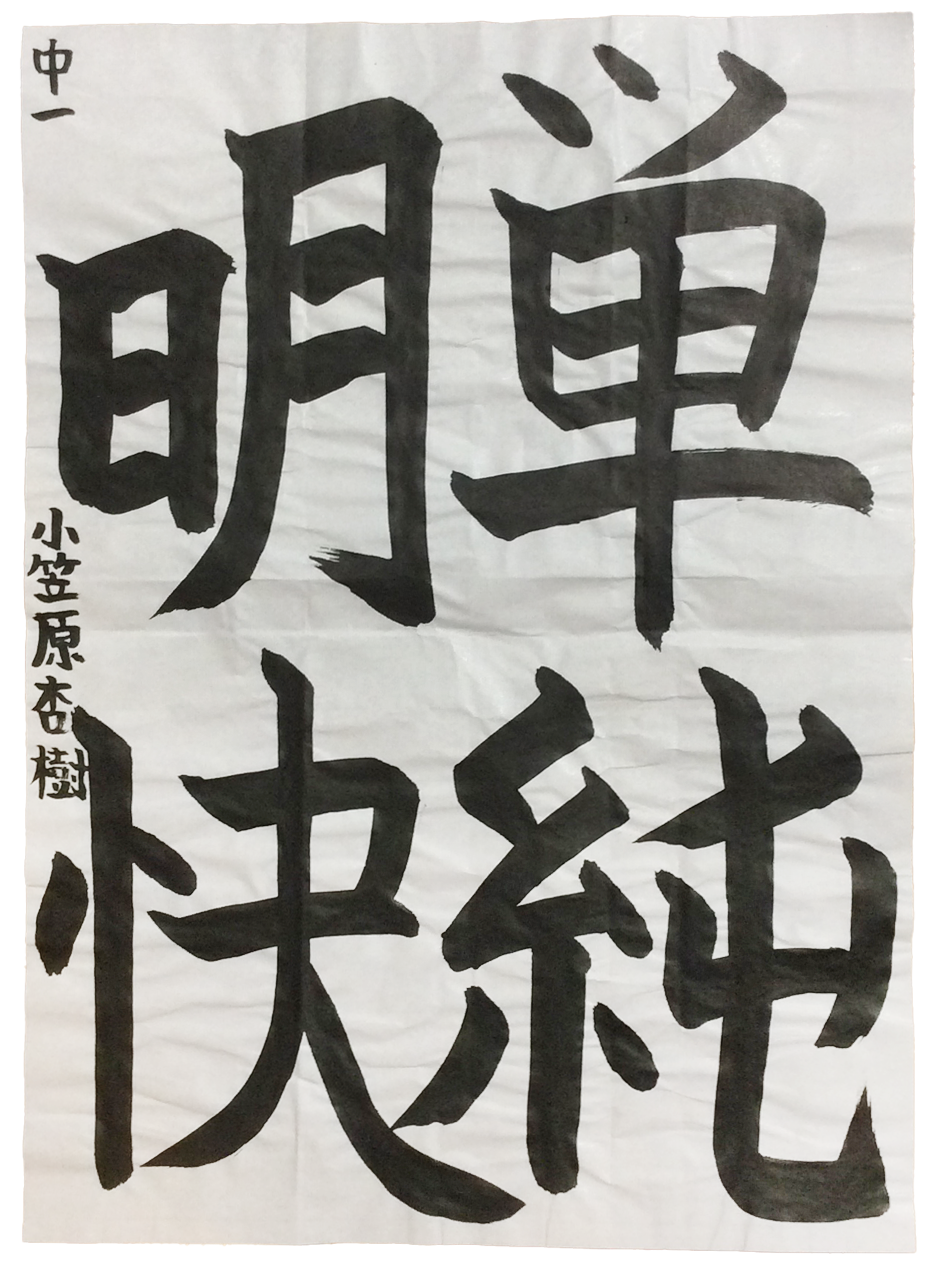 単純
明快
中一
小笠原杏樹